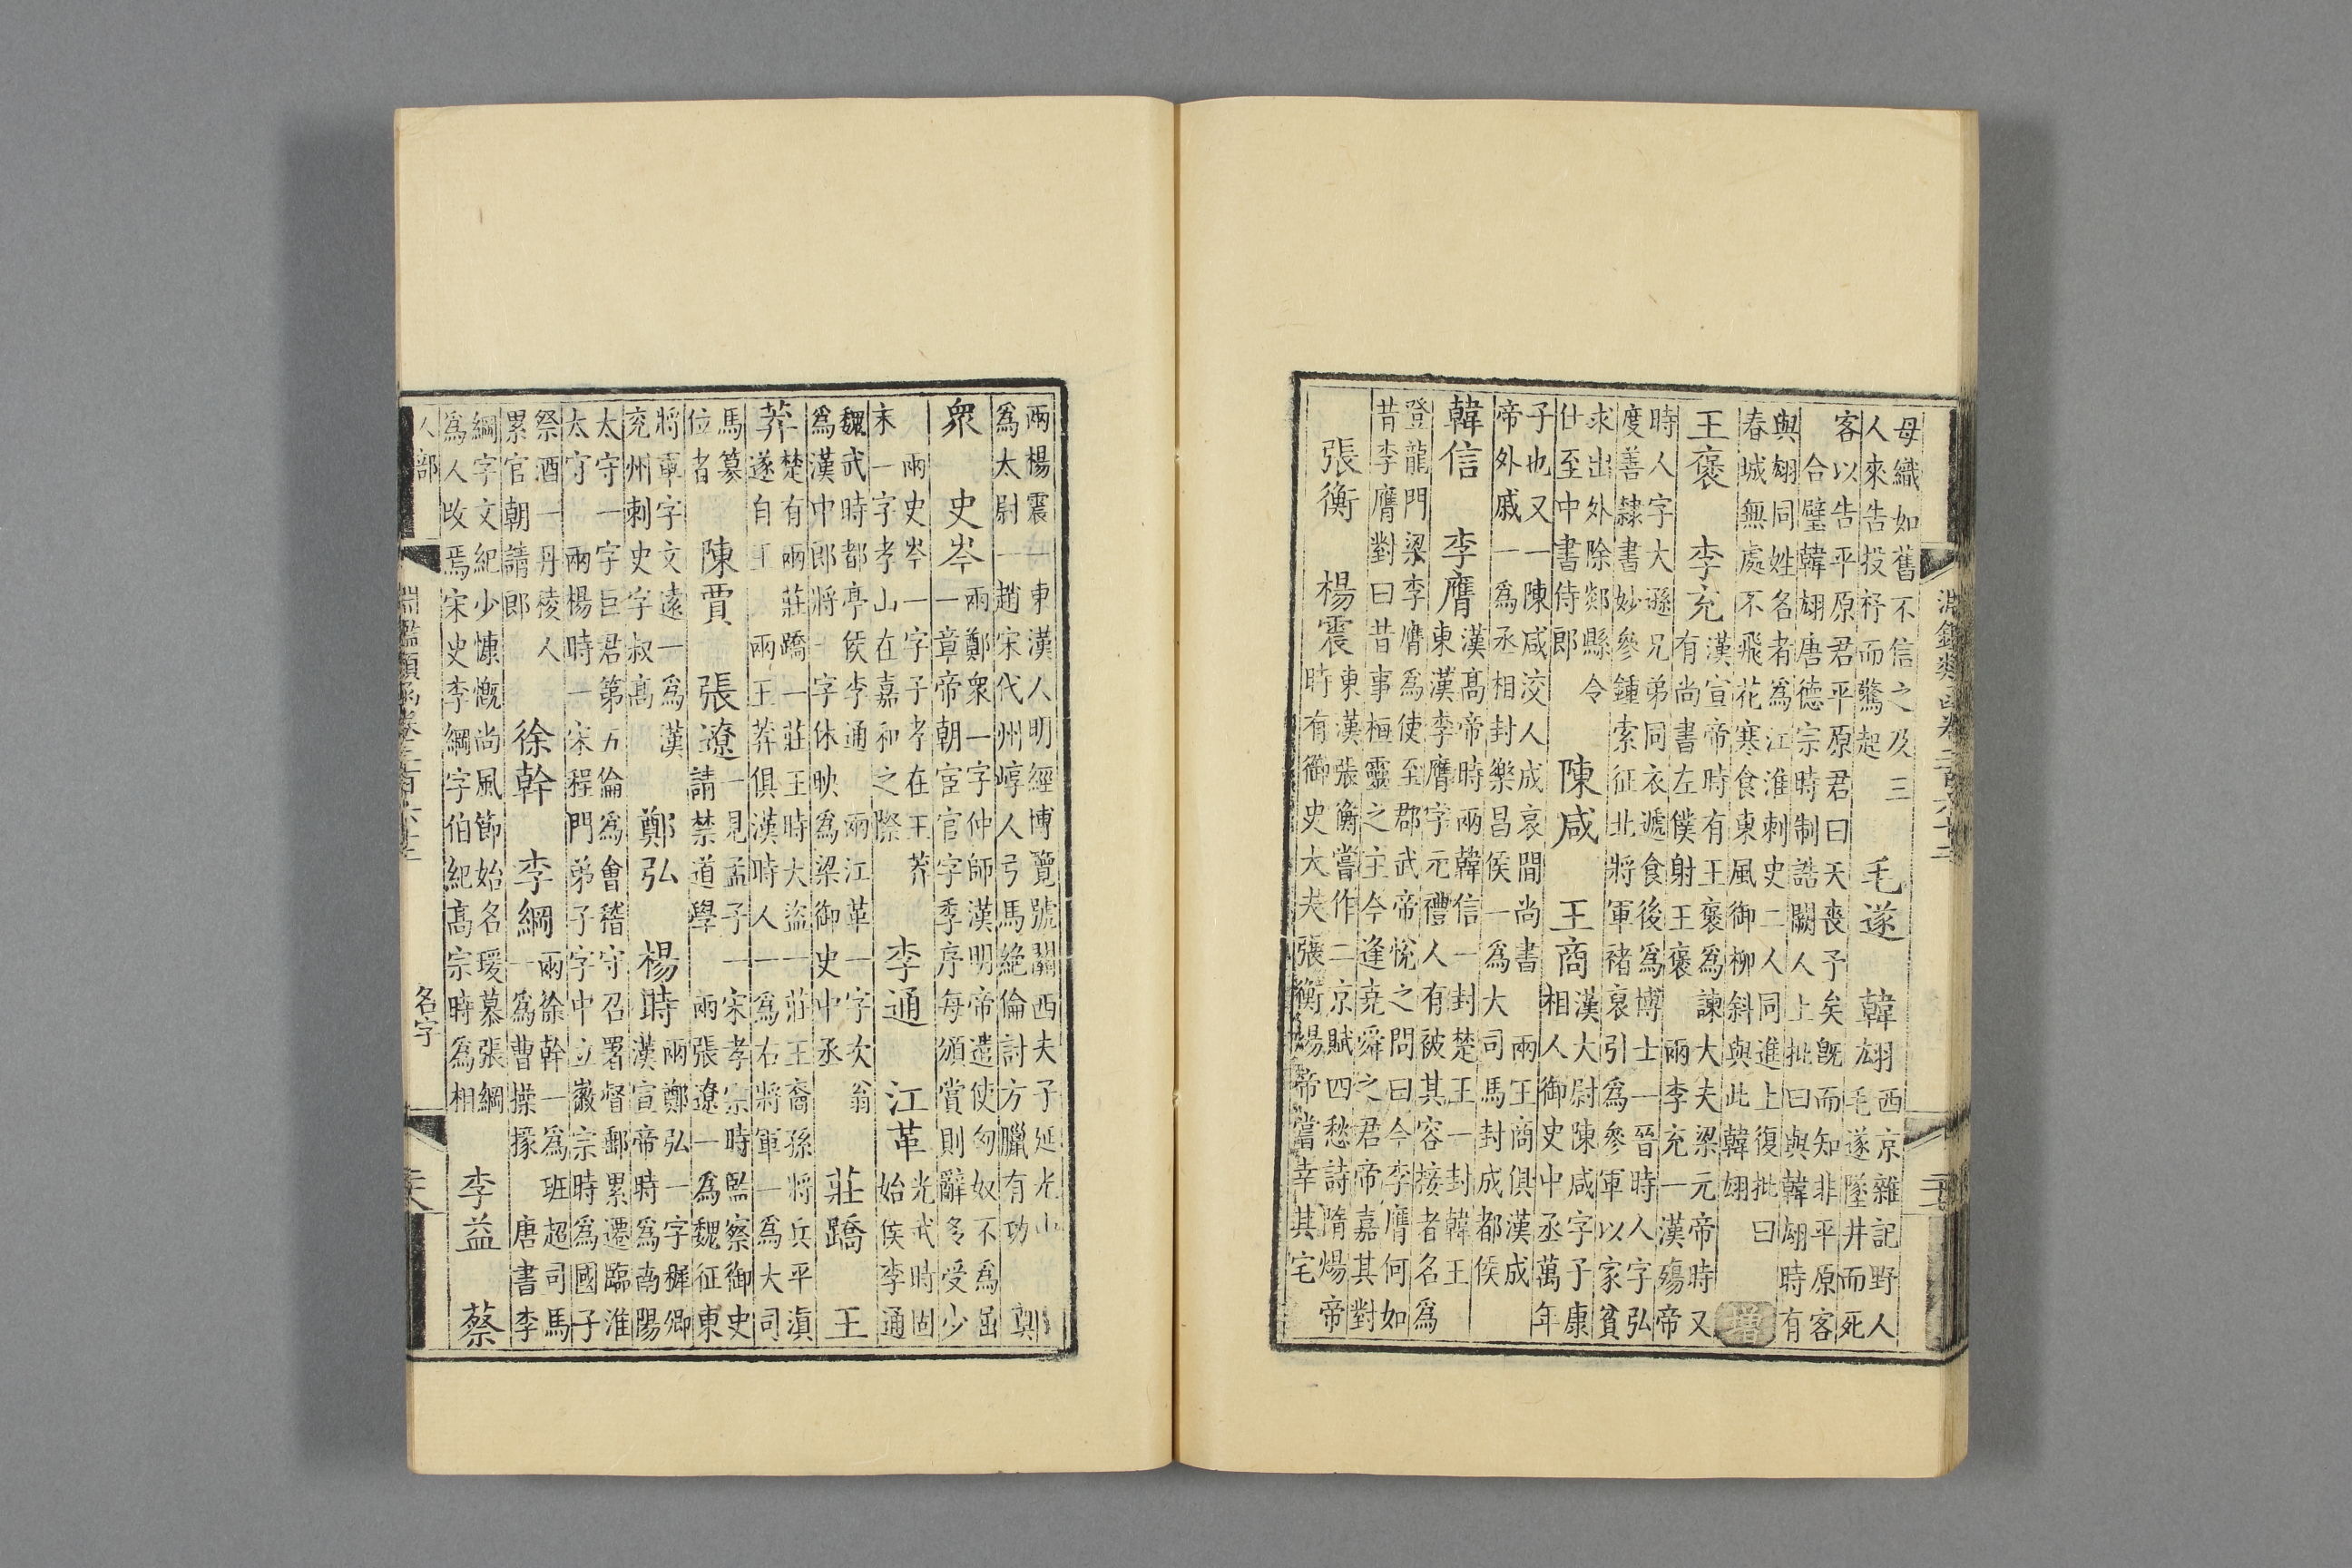 淵鑑類函卷二百六十二
母織如舊不信之及三
人來告投杼而驚起
毛遂　韓翃
西京雜記野人
毛遂墜井而死
客以告平原君平原君曰天喪予矣旣而知非平原客
合璧韓翃唐德宗時制誥闕人上批曰與韓翃時有
與翃同姓名者為江淮刺史二人同進上復批曰
春城無處不飛花寒食東風御柳斜與此韓翃
增
王褒　李充
漢宣帝時有王褒為諫大夫梁元帝時又
有尚書左僕射王褒　兩李充一漢殤帝
時人字大遜兄弟同衣遞食後為博士一晉時人字弘
度善隸書妙參鍾索征北將軍褚裒引為參軍以家貧
求出外除剡縣令
仕至中書侍郎
陳咸　王商
漢大尉陳咸字子康
相人御史中丞萬年
子也又一陳咸洨人成哀間尚書　兩王商俱漢成
帝外戚一為丞相封樂昌侯一為大司馬封成都侯
韓信　李膺
漢高帝時兩韓信一封楚王一封韓王
東漢李膺字元禮人有被其容接者名為
登龍門梁李膺為使至郡武帝悅之問曰今李膺何如
昔李膺對曰昔事桓靈之主今逢堯舜之君帝嘉其對
張衡　楊震
東漢張衡嘗作二京賦四愁詩隋煬帝
時有御史大夫張衡煬帝嘗幸其宅
兩楊震一東漢人明經博覽號關西夫子延光中
為太尉一趙宋代州崞人弓馬絕倫討方臘有功
鄭
眾　史岑
兩鄭衆一字仲師漢明帝遣使匈奴不為屈
一章帝朝宦官字季序每頒賞則辭多受少
兩史岑一字子孝在王莽
末一字孝山在嘉和之際
李通　江革
光武時固
始侯李通
魏武時都亭侯李通　兩江革一字次翁
為漢中郎將一字休映為梁御史中丞
莊蹻　王
莽
楚有兩莊蹻一莊王時大盜一莊王裔孫將兵平滇
遂自王　兩王莽俱漢時人一為右將軍一為大司
馬篡
位者
陳賈　張遼
一見孟子一宋孝宗時監察御史
請禁道學　兩張遼一為魏征東
將軍字文遠一為漢
兗州刺史字叔高
鄭弘　楊時
兩鄭弘一字穉卿
漢宣帝時為南陽
太守一字巨君第五倫為會稽守召署督郵累遷臨淮
太守　兩楊時一宋程門弟子字中立徽宗時為國子
祭酒一丹稜人
累官朝請郎
徐幹　李綱
兩徐幹一為班超司馬
一為曹操掾　唐書李
綱字文紀少慷慨尚風節始名瑗慕張綱
為人改焉宋史李綱字伯紀高宗時為相
李益　蔡
人部
淵鑑類函卷二百六十二
名字